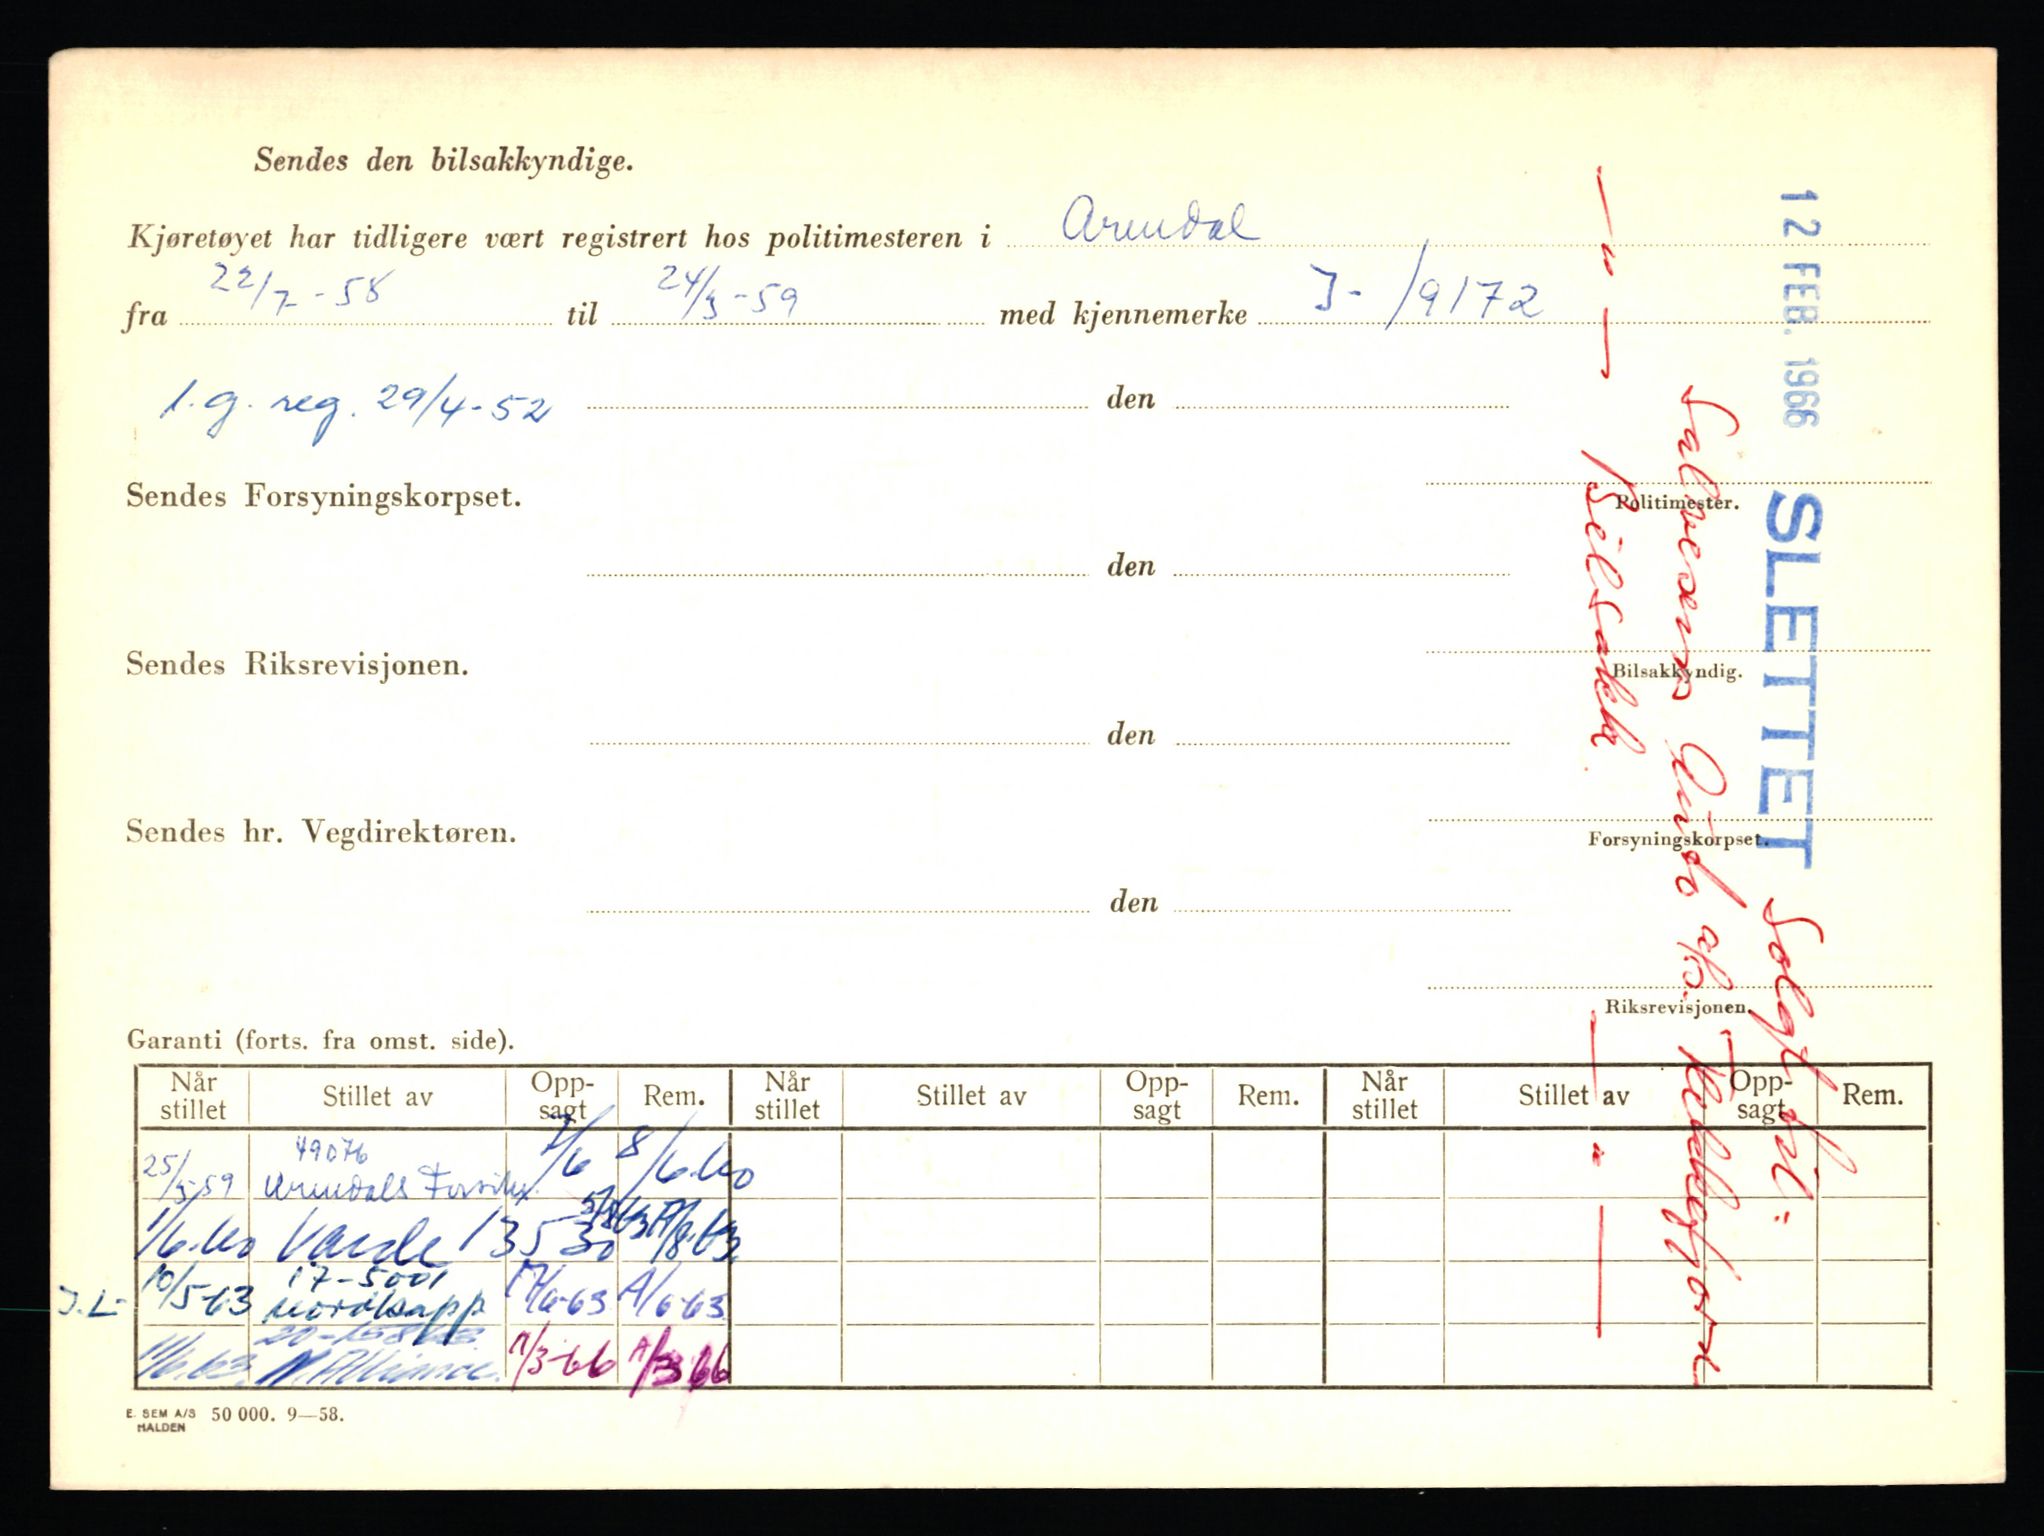 Sendes den bilsakkyndige.
Kjøretøyet har tidligere vært registrert hos politimesteren i Arendal
fra 22/7-58 til 24/3-59 med kjennemerke I-19172
1.g. reg. 29/4-52 den
Politimester.
Sendes Forsyningskorpset.
den
Bilsakkyndig.
Sendes Riksrevisjonen.
den
Forsyningskorpset.
Sendes hr. Vegdirektøren.
den
Riksrevisjonen.
12 FEB. 1966 SLETTET Solgt til:
Salvesen
— " — Bilsakk. — " —
Garanti (forts. fra omst. side).
Når stillet Stillet av Opp-sagt Rem. Når stillet Stillet av Opp-sagt Rem. Når stillet Stillet av Opp-sagt Rem.
49076
25/3-59 Arendals 7/6 8/6.60
1/6.60 Varde 13530
17-5001
J.L- 10/5-63 Nordkapp 17/6-63 /6-63
11/6.63 N. Alliance. 11/3-66 11/3 66
E. SEM A/S 50 000. 9—58.
HALDEN